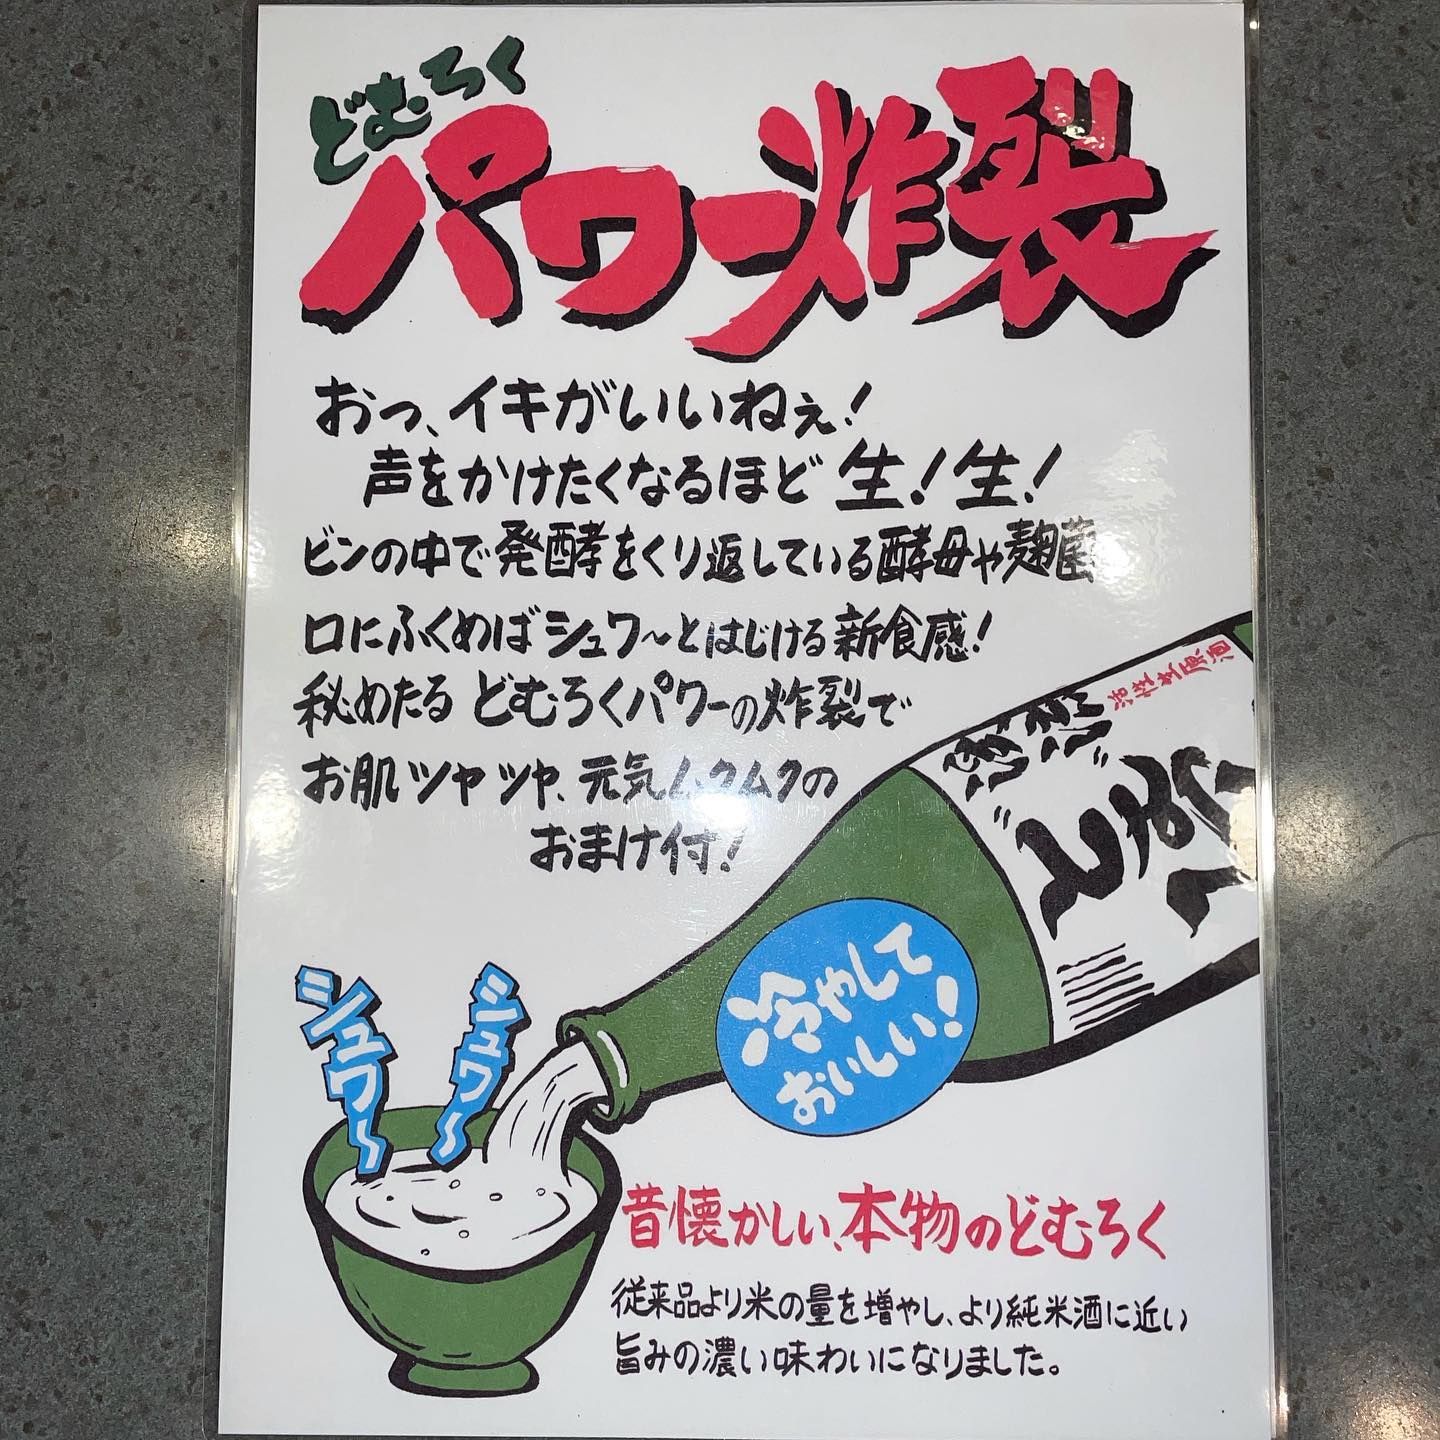 どむろく
パワー炸裂
おっ、イキがいいねぇ!
声をかけたくなるほど 生!生!
ビンの中で発酵をくり返している酵母や麹菌
口にふくめばシュワ〜とはじける新食感!
秘めたる どむろくパワーの炸裂で
お肌ツヤツヤ、元気ムクムクの
おまけ付!
活性生原酒
どむろ
冷やして
おいしい!
シュワ〜
シュワ〜
昔懐かしい、本物のどむろく
従来品より米の量を増やし、より純米酒に近い
旨みの濃い味わいになりました。